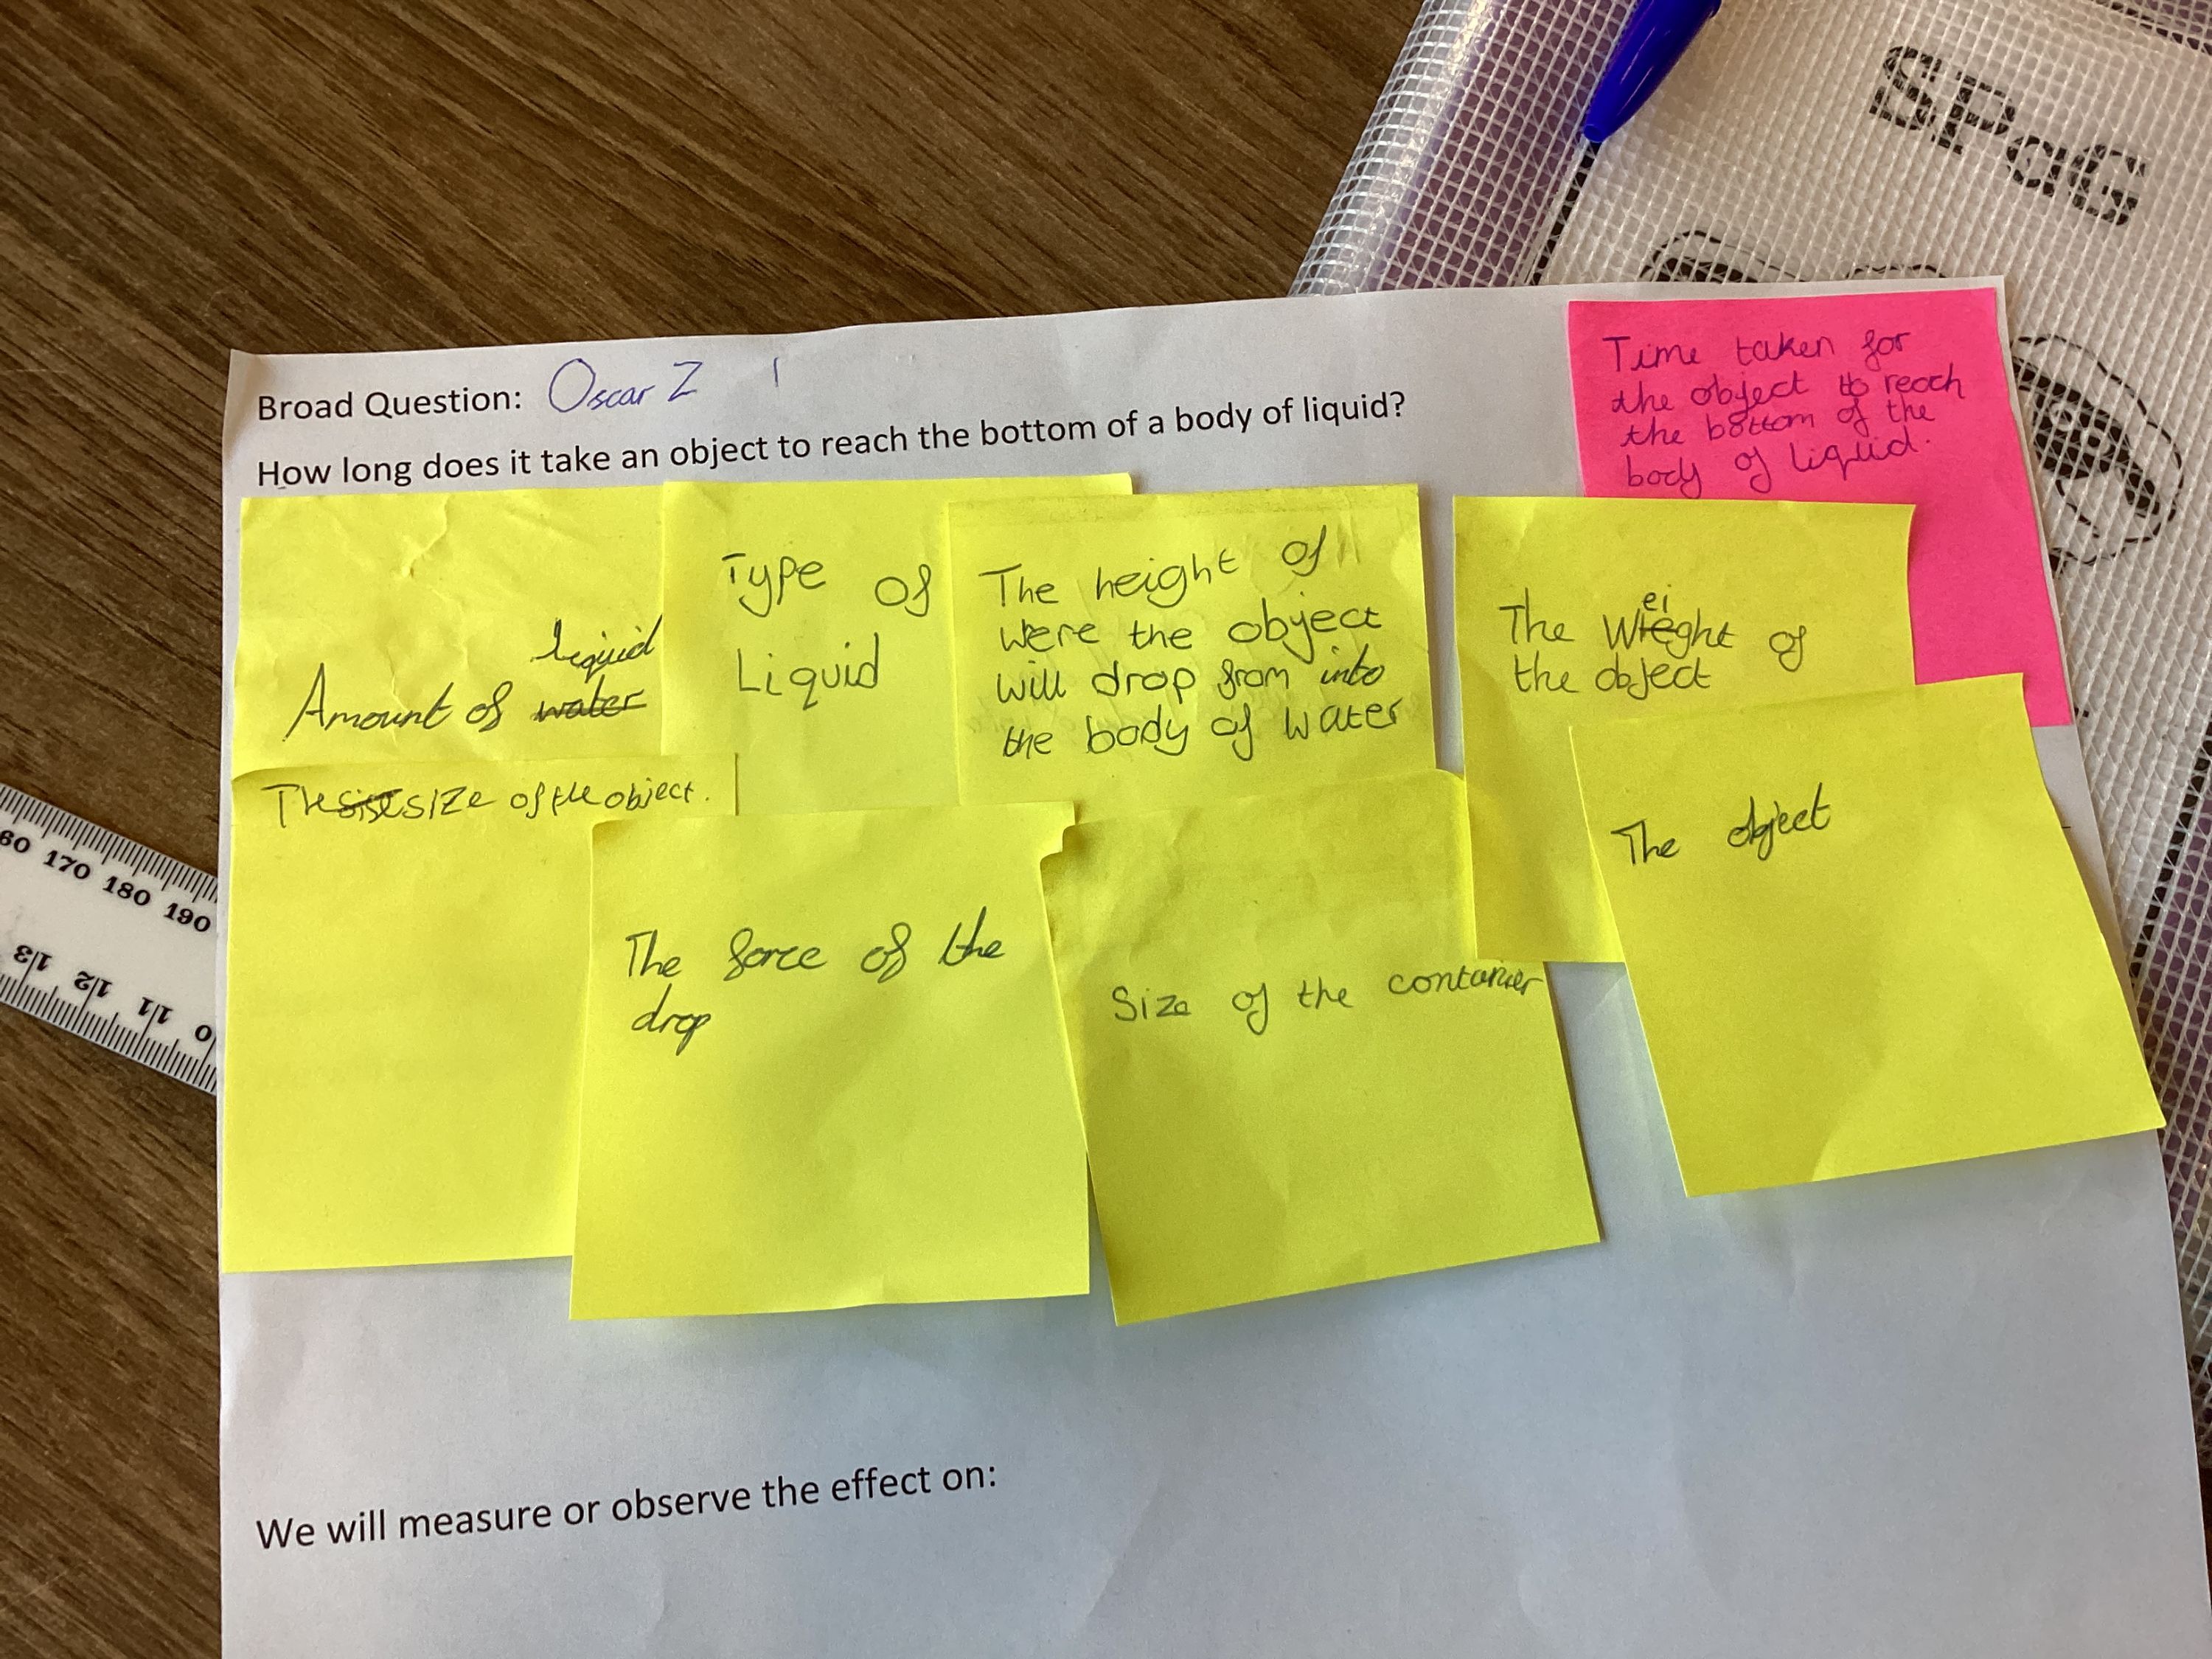 SPaG
Broad Question: Oscar Z
How long does it take an object to reach the bottom of a body of liquid?
Time taken for
the object to reach
the bottom of the
body of liquid.
liquid
Amount of water
Type of
Liquid
The height of
were the object
will drop from into
the body of water
The Weight of
the object
The size of the object.
The force of the
drop
Size of the container
The object
We will measure or observe the effect on:
60 170 180 190
1/3 1/2 1/1 0